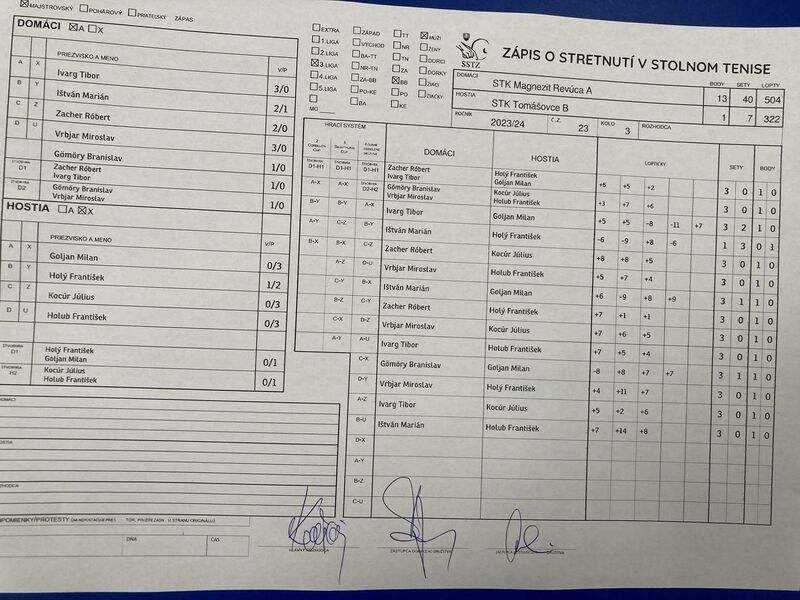 MAJSTROVSKÝ POHÁROVÝ PRIATEĽSKÝ ZÁPAS
DOMÁCI A X
PRIEZVISKO A MENO V/P
A X Ivarg Tibor 3/0
B Y Ištván Marián 2/1
C Z Zacher Róbert 2/0
D U Vrbjar Miroslav 3/0
Gömöry Branislav 1/0
ŠTVORHRA D1 Zacher Róbert
Ivarg Tibor 1/0
ŠTVORHRA D2 Gömöry Branislav
Vrbjar Miroslav 1/0
HOSTIA A X
PRIEZVISKO A MENO V/P
A X Goljan Milan 0/3
B Y Holý František 1/2
C Z Kocúr Július 0/3
D U Holub František 0/3
ŠTVORHRA D1 Holý František
Goljan Milan 0/1
ŠTVORHRA H2 Kocúr Július
Holub František 0/1
DOMÁCI
HOSTIA
DÑA ČAS
EXTRA ZÁPAD TT MUŽI
1. LIGA VÝCHOD NR ŽENY
2. LIGA BA-TT TN DORCI
3. LIGA NR-TN ZA DORKY
4. LIGA ZA-BB BB ŽIACI
5. LIGA PO-KE PO ŽIAČKY
BA KE
MO
SSTZ
ZÁPIS O STRETNUTÍ V STOLNOM TENISE
DOMÁCI STK Magnezit Revúca A
HOSTIA STK Tomášovce B
BODY SETY LOPTY
13 40 504
1 7 322
ROČNÍK 2023/24 Č.Z. 23 KOLO 3 ROZHODCA
HRACÍ SYSTÉM DOMÁCI HOSTIA LOPTIČKY SETY BODY
D1-H1 D1-H1 D1-H1 Zacher Róbert Holý František
Ivarg Tibor Goljan Milan +6 +5 +2 3 0 1 0
A-X A-X D2-H2 Gömöry Branislav Kocúr Július
Vrbjar Miroslav Holub František +3 +7 +6 3 0 1 0
B-Y B-Y A-X Ivarg Tibor Goljan Milan +5 +5 -8 -11 +7 3 2 1 0
A-Y C-Z B-Y Ištván Marián Holý František -6 -9 +8 -6 1 3 0 1
B-X B-X C-Z Zacher Róbert Kocúr Július +8 +8 +5 3 0 1 0
A-Z D-U Vrbjar Miroslav Holub František +5 +7 +4 3 0 1 0
C-Y B-X Ištván Marián Goljan Milan +6 -9 +8 +9 3 1 1 0
B-Z C-Y Zacher Róbert Holý František +7 +1 +1 3 0 1 0
C-X D-Z Vrbjar Miroslav Kocúr Július +7 +6 +5 3 0 1 0
A-Y A-U Ivarg Tibor Holub František +7 +5 +4 3 0 1 0
C-X Gömöry Branislav Goljan Milan -8 +8 +7 +7 3 1 1 0
D-Y Vrbjar Miroslav Holý František +4 +11 +7 3 0 1 0
A-Z Ivarg Tibor Kocúr Július +5 +2 +6 3 0 1 0
B-U Ištván Marián Holub František +7 +14 +8 3 0 1 0
D-X
A-Y
B-Z
C-U
HLAVNÝ ROZHODCA